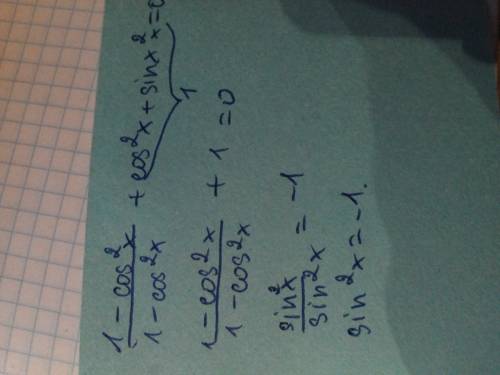 1 - cos²x / 1 - cos²x + cos²x + sin x² x = 0
1
1 - cos²x / 1 - cos²x + 1 = 0
sin²x / sin²x = -1
sin²x = -1.